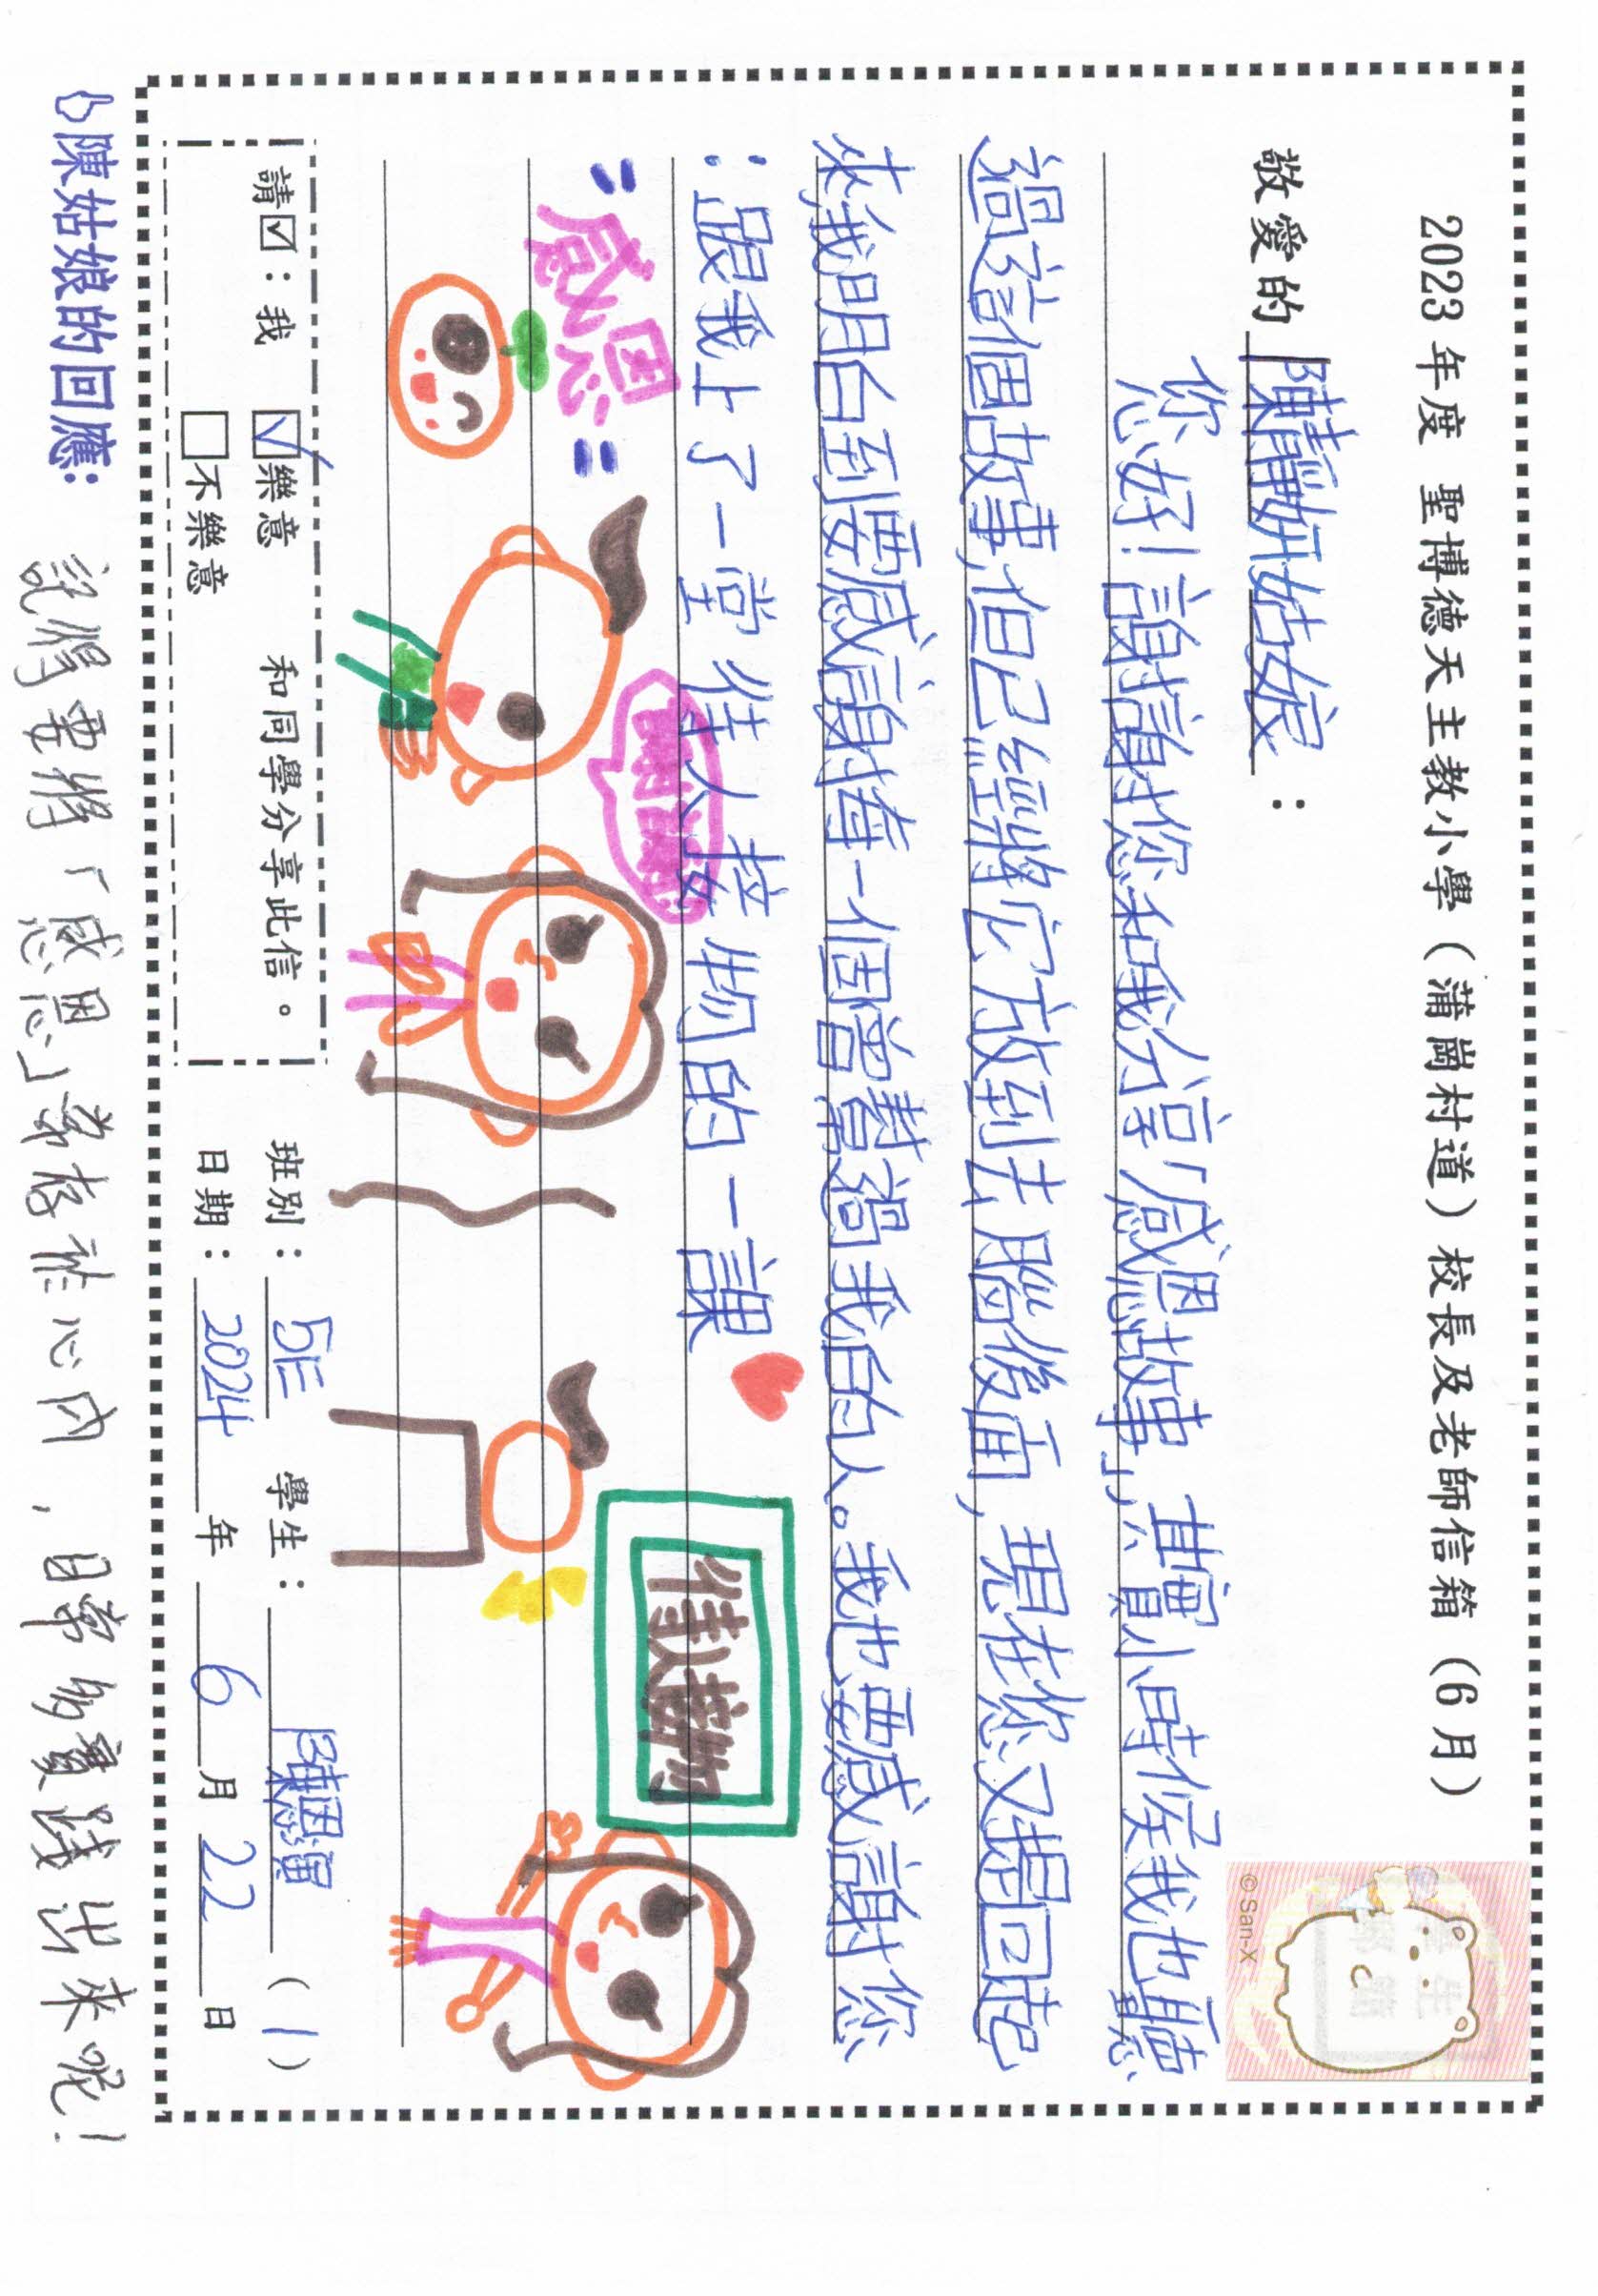 2023年度 聖博德天主教小學（蒲崗村道）校長及老師信箱（6月）
敬愛的 陳靜妍姑娘：
您好！謝謝您和我分享「感恩故事」，其實小時侯我也聽
過這個故事,但已經將它放到去腦後面，現在您又提回起
來,我明白到要感謝每一個曾幫過我的人。我也要感謝您
：跟我上了一堂待人接物的一課
"感恩"
謝謝
待人接物
請☑：我 ☑樂意 和同學分享此信。
□不樂意
班別：5E 學生：陳恩 (1)
日期：2024年6月22日
陳姑娘的回應：說得要將「感恩」常存在心內，日常多實踐出來呢！
©San-X